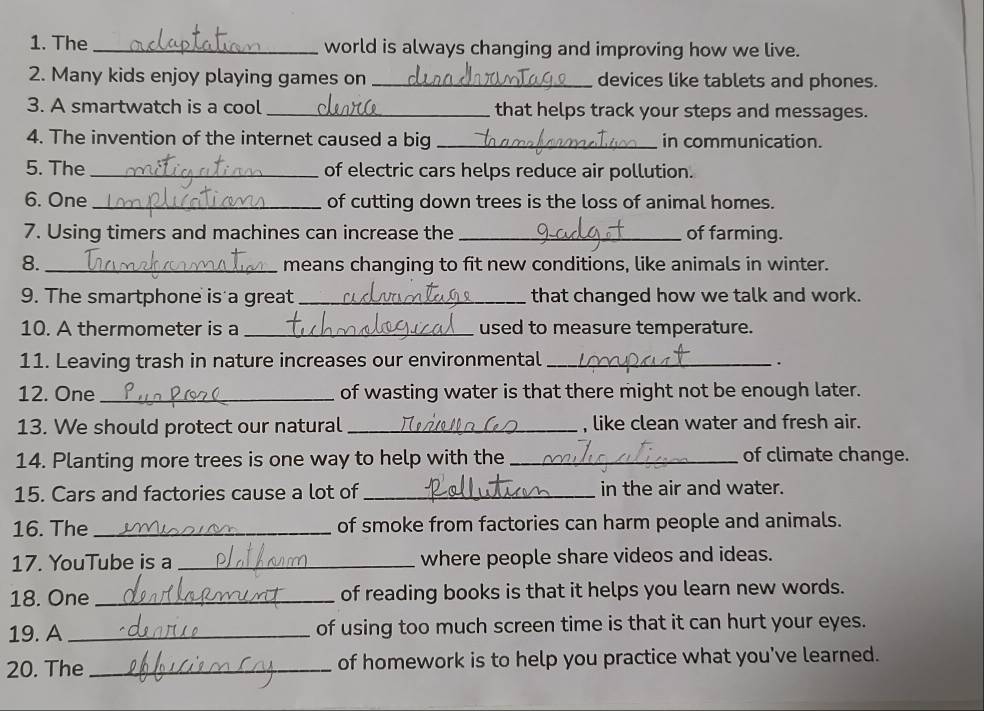 1. The adaptation world is always changing and improving how we live.
2. Many kids enjoy playing games on disadvantage devices like tablets and phones.
3. A smartwatch is a cool device that helps track your steps and messages.
4. The invention of the internet caused a big transformation in communication.
5. The mitigation of electric cars helps reduce air pollution.
6. One implications of cutting down trees is the loss of animal homes.
7. Using timers and machines can increase the gadget of farming.
8. Transformation means changing to fit new conditions, like animals in winter.
9. The smartphone is a great advantage that changed how we talk and work.
10. A thermometer is a technological used to measure temperature.
11. Leaving trash in nature increases our environmental impact.
12. One of wasting water is that there might not be enough later.
13. We should protect our natural , like clean water and fresh air.
14. Planting more trees is one way to help with the mitigation of climate change.
15. Cars and factories cause a lot of Pollution in the air and water.
16. The emission of smoke from factories can harm people and animals.
17. YouTube is a platform where people share videos and ideas.
18. One development of reading books is that it helps you learn new words.
19. A device of using too much screen time is that it can hurt your eyes.
20. The efficiency of homework is to help you practice what you've learned.